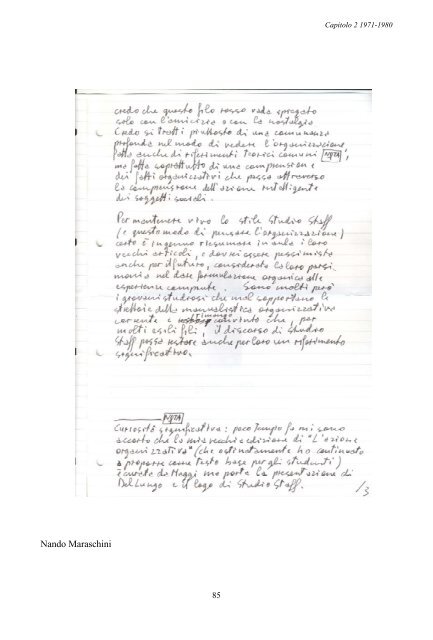 Capitolo 2 1971-1980
credo che questo filo rosso vada spiegato
solo con l'amicizia o con la nostalgia
Credo si tratti piuttosto di una comunanza
profonda nel modo di vedere l'organizzazione
fatta anche di riferimenti teorici comuni [NOTA],
ma fatta soprattutto di una comprensione
dei fatti organizzativi che passa attraverso
la comprensione dell'azione intelligente
dei soggetti sociali.
Per mantenere vivo lo stile Studio Staff
(e questo modo di pensare l'organizzazione)
certo è ingenuo riesumare in aula i loro
vecchi articoli, e dovrei essere pessimista
anche per il futuro, considerata la loro parsi
monia nel dare formulazione organica alle
esperienze compiute. Sono molti però
i giovani studiosi che mal sopportano le
strettoie della manualistica organizzativa
corrente e rimango convinto che, per
molti esili fili, il discorso di Studio
Staff possa restare anche per loro un riferimento
significativo.
NOTA
Curiosità significativa: poco tempo fa mi sono
accorto che la mia vecchia edizione di "L'azione
organizzativa" (che ostinatamente ho continuato
a proporre come testo base per gli studenti)
è curata da Maggi ma porta la presentazione di
Del Lungo e il logo di Studio Staff.
/3
Nando Maraschini
85